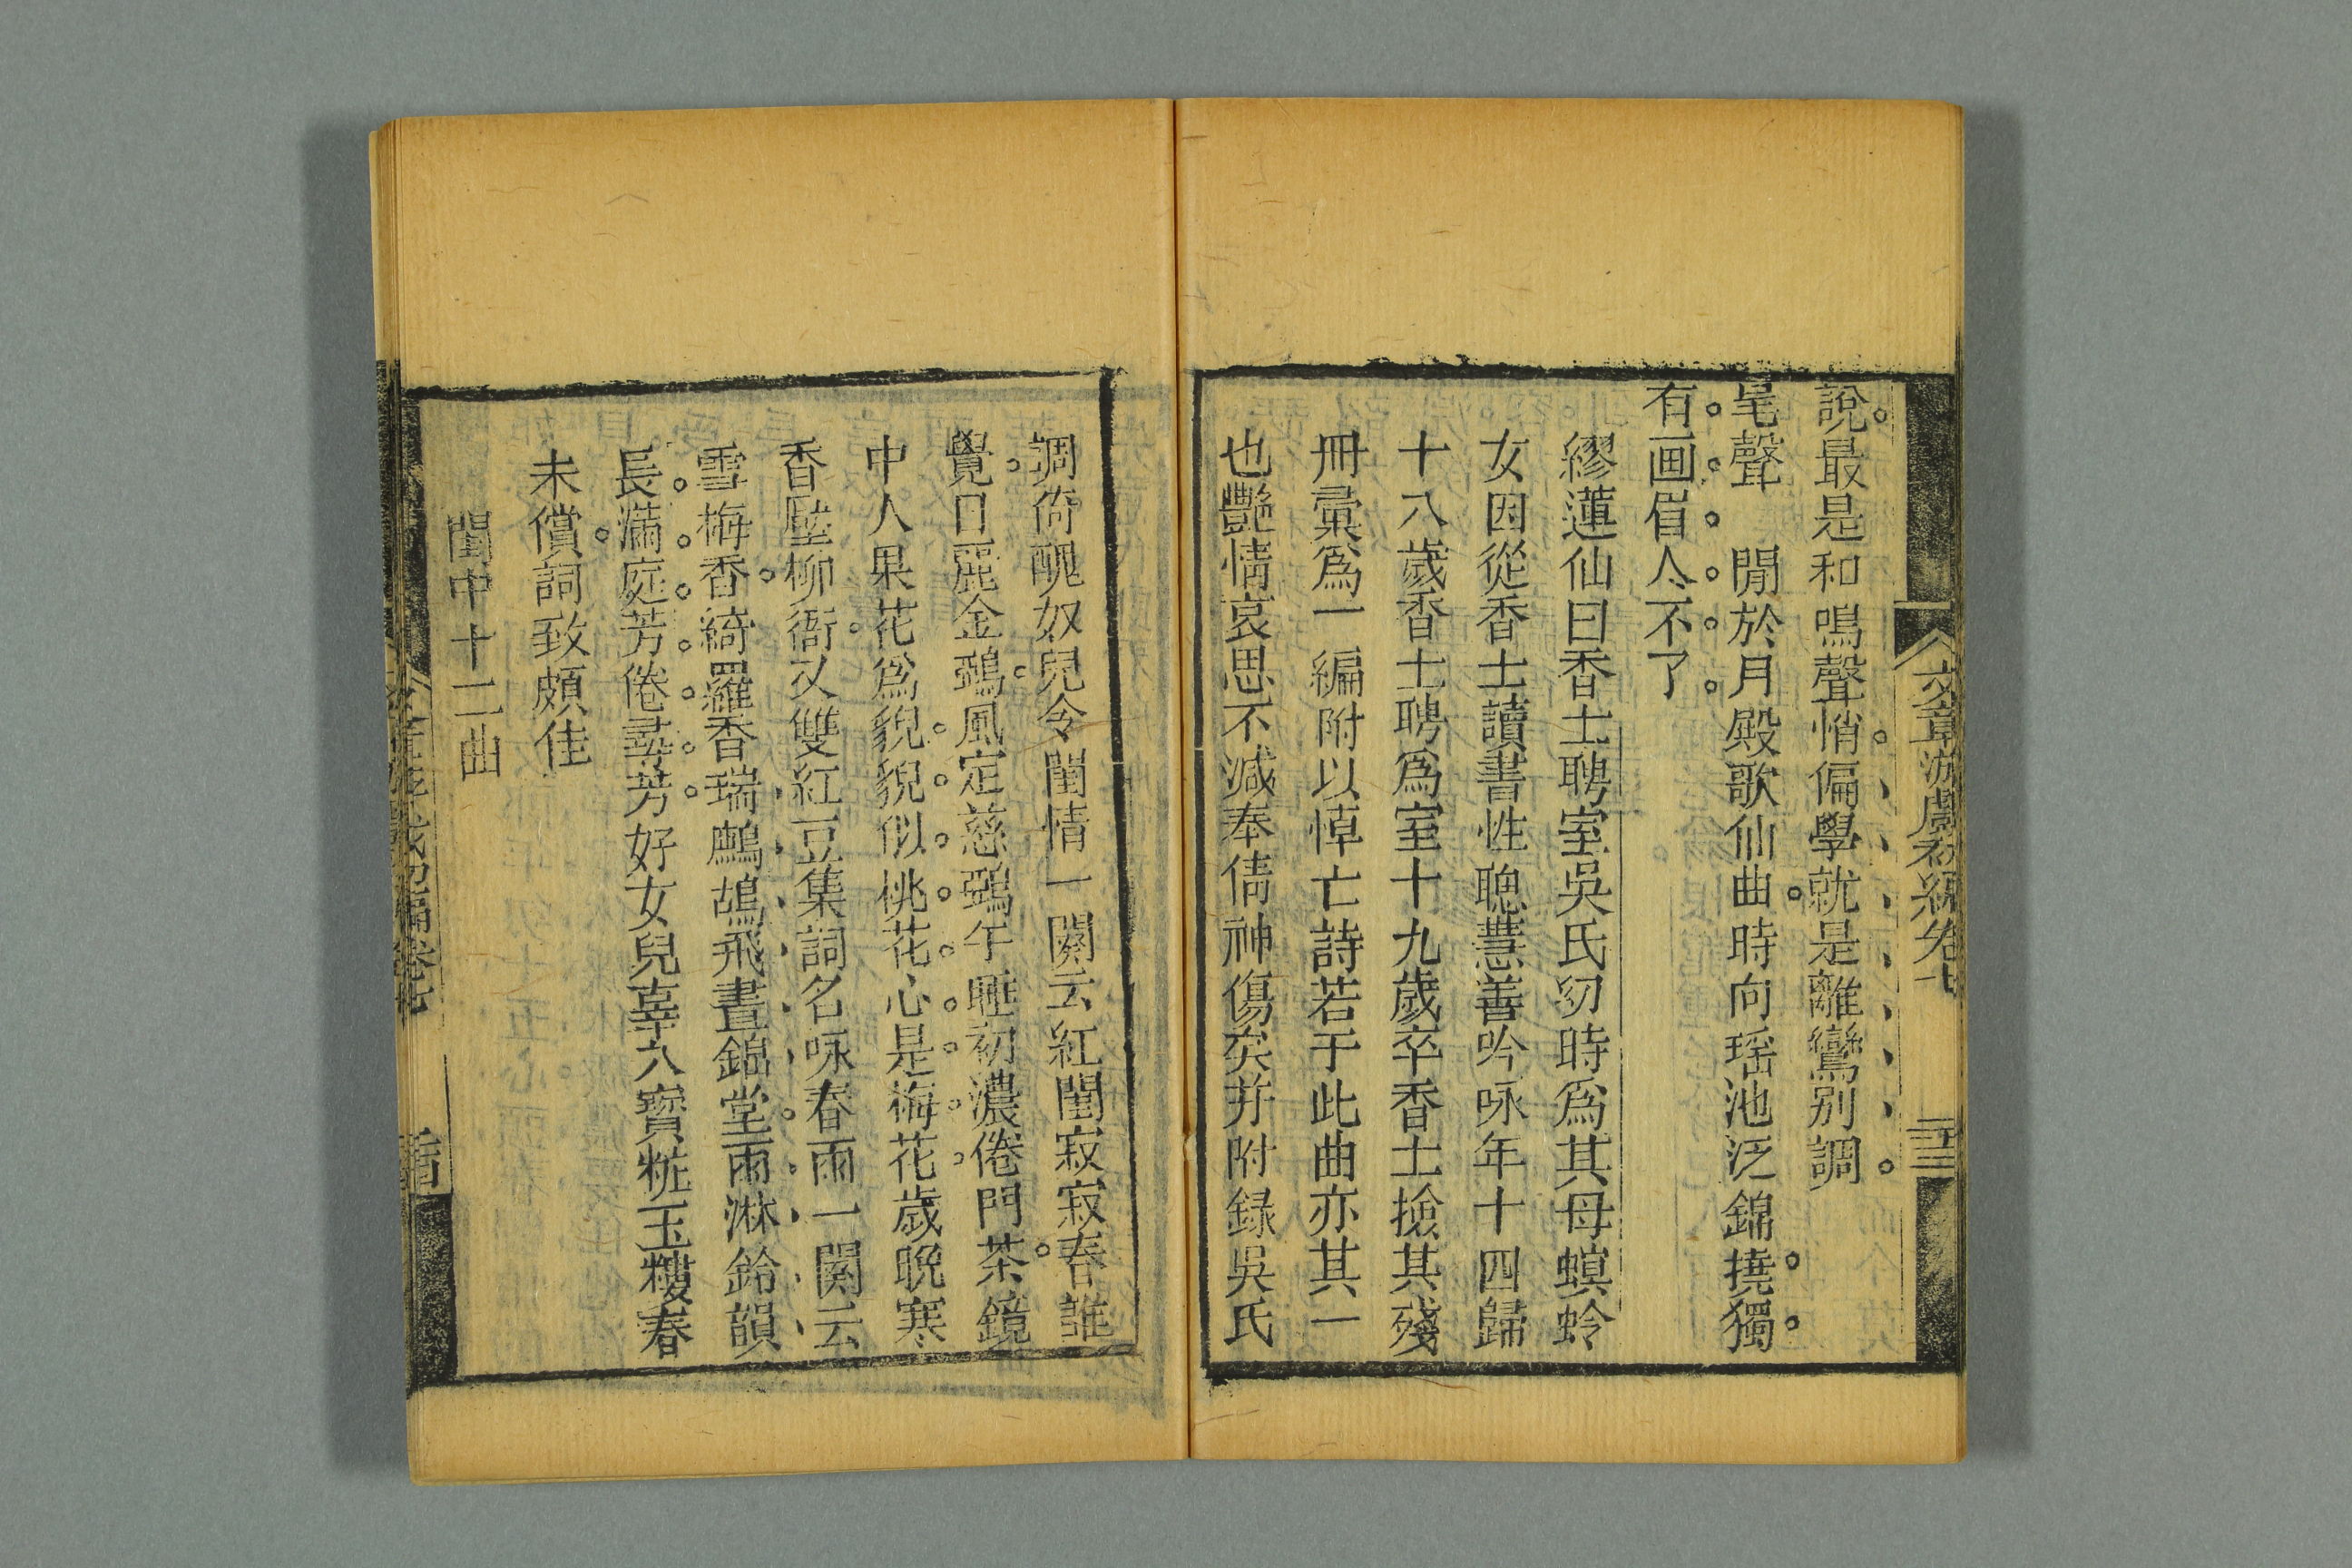 文章游戲初編卷七
三十三
說最是和鳴聲悄偏學就是離鸞別調
尾聲　閒於月殿歌仙曲時向瑶池泛錦撓獨
有画眉人不了
繆蓮仙曰香士聘室吳氏㓜時爲其母螟蛉
女因從香士讀書性聰慧善吟咏年十四歸
十八歲香士聘爲室十九歲卒香士撿其殘
冊彙爲一編附以悼亡詩若于此曲亦其一
也艷情哀思不減奉倩神傷矣并附録吳氏
調倚醜奴兒令閨情一闋云紅閨寂寂春誰
覺日麗金鵶風定慈鵶午睡初濃倦鬥茶鏡
中人果花爲貌貌似桃花心是梅花歲晚寒
香壓柳衙又雙紅豆集詞名咏春雨一闋云
雪梅香綺羅香瑞鷓鴣飛晝錦堂雨淋鈴韻
長滿庭芳倦尋芳好女兒辜八寶粧玉樓春
未償詞致頗佳
閨中十二曲